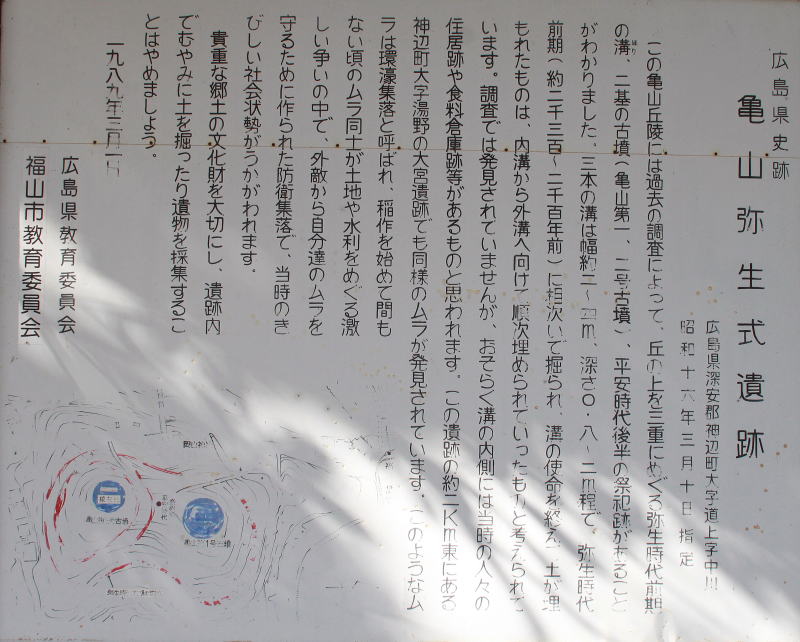 広島県史跡
亀山弥生式遺跡
広島県深安郡神辺町大字道上字中川
昭和十六年三月十日 指定
この亀山丘陵には過去の調査によって、丘の上を三重にめぐる弥生時代前期
の溝、二基の古墳(亀山第一、二号古墳)、平安時代後半の祭祀跡があること
がわかりました。三本の溝は幅約 m、深さ〇・八〜二m程で、弥生時代
前期(約二千三百〜二千百年前)に相次いで掘られ、溝の使命を終え、土が埋
もれたものは、内溝から外溝へ向けて順次埋められていったものと考えられて
います。調査では発見されていませんが、おそらく溝の内側には当時の人々の
住居跡や食料倉庫跡等があるものと思われます。この遺跡の約二Km東にある
神辺町大字湯野の大宮遺跡でも同様のムラが発見されています。このようなム
ラは環濠集落と呼ばれ、稲作を始めて間も
ない頃のムラ同士が土地や水利をめぐる激
しい争いの中で、外敵から自分達のムラを
守るために作られた防衛集落で、当時のき
びしい社会状勢がうかがわれます。
貴重な郷土の文化財を大切にし、遺跡内
でむやみに土を掘ったり遺物を採集するこ
とはやめましょう。
一九八九年三月一日
広島県教育委員会
福山市教育委員会